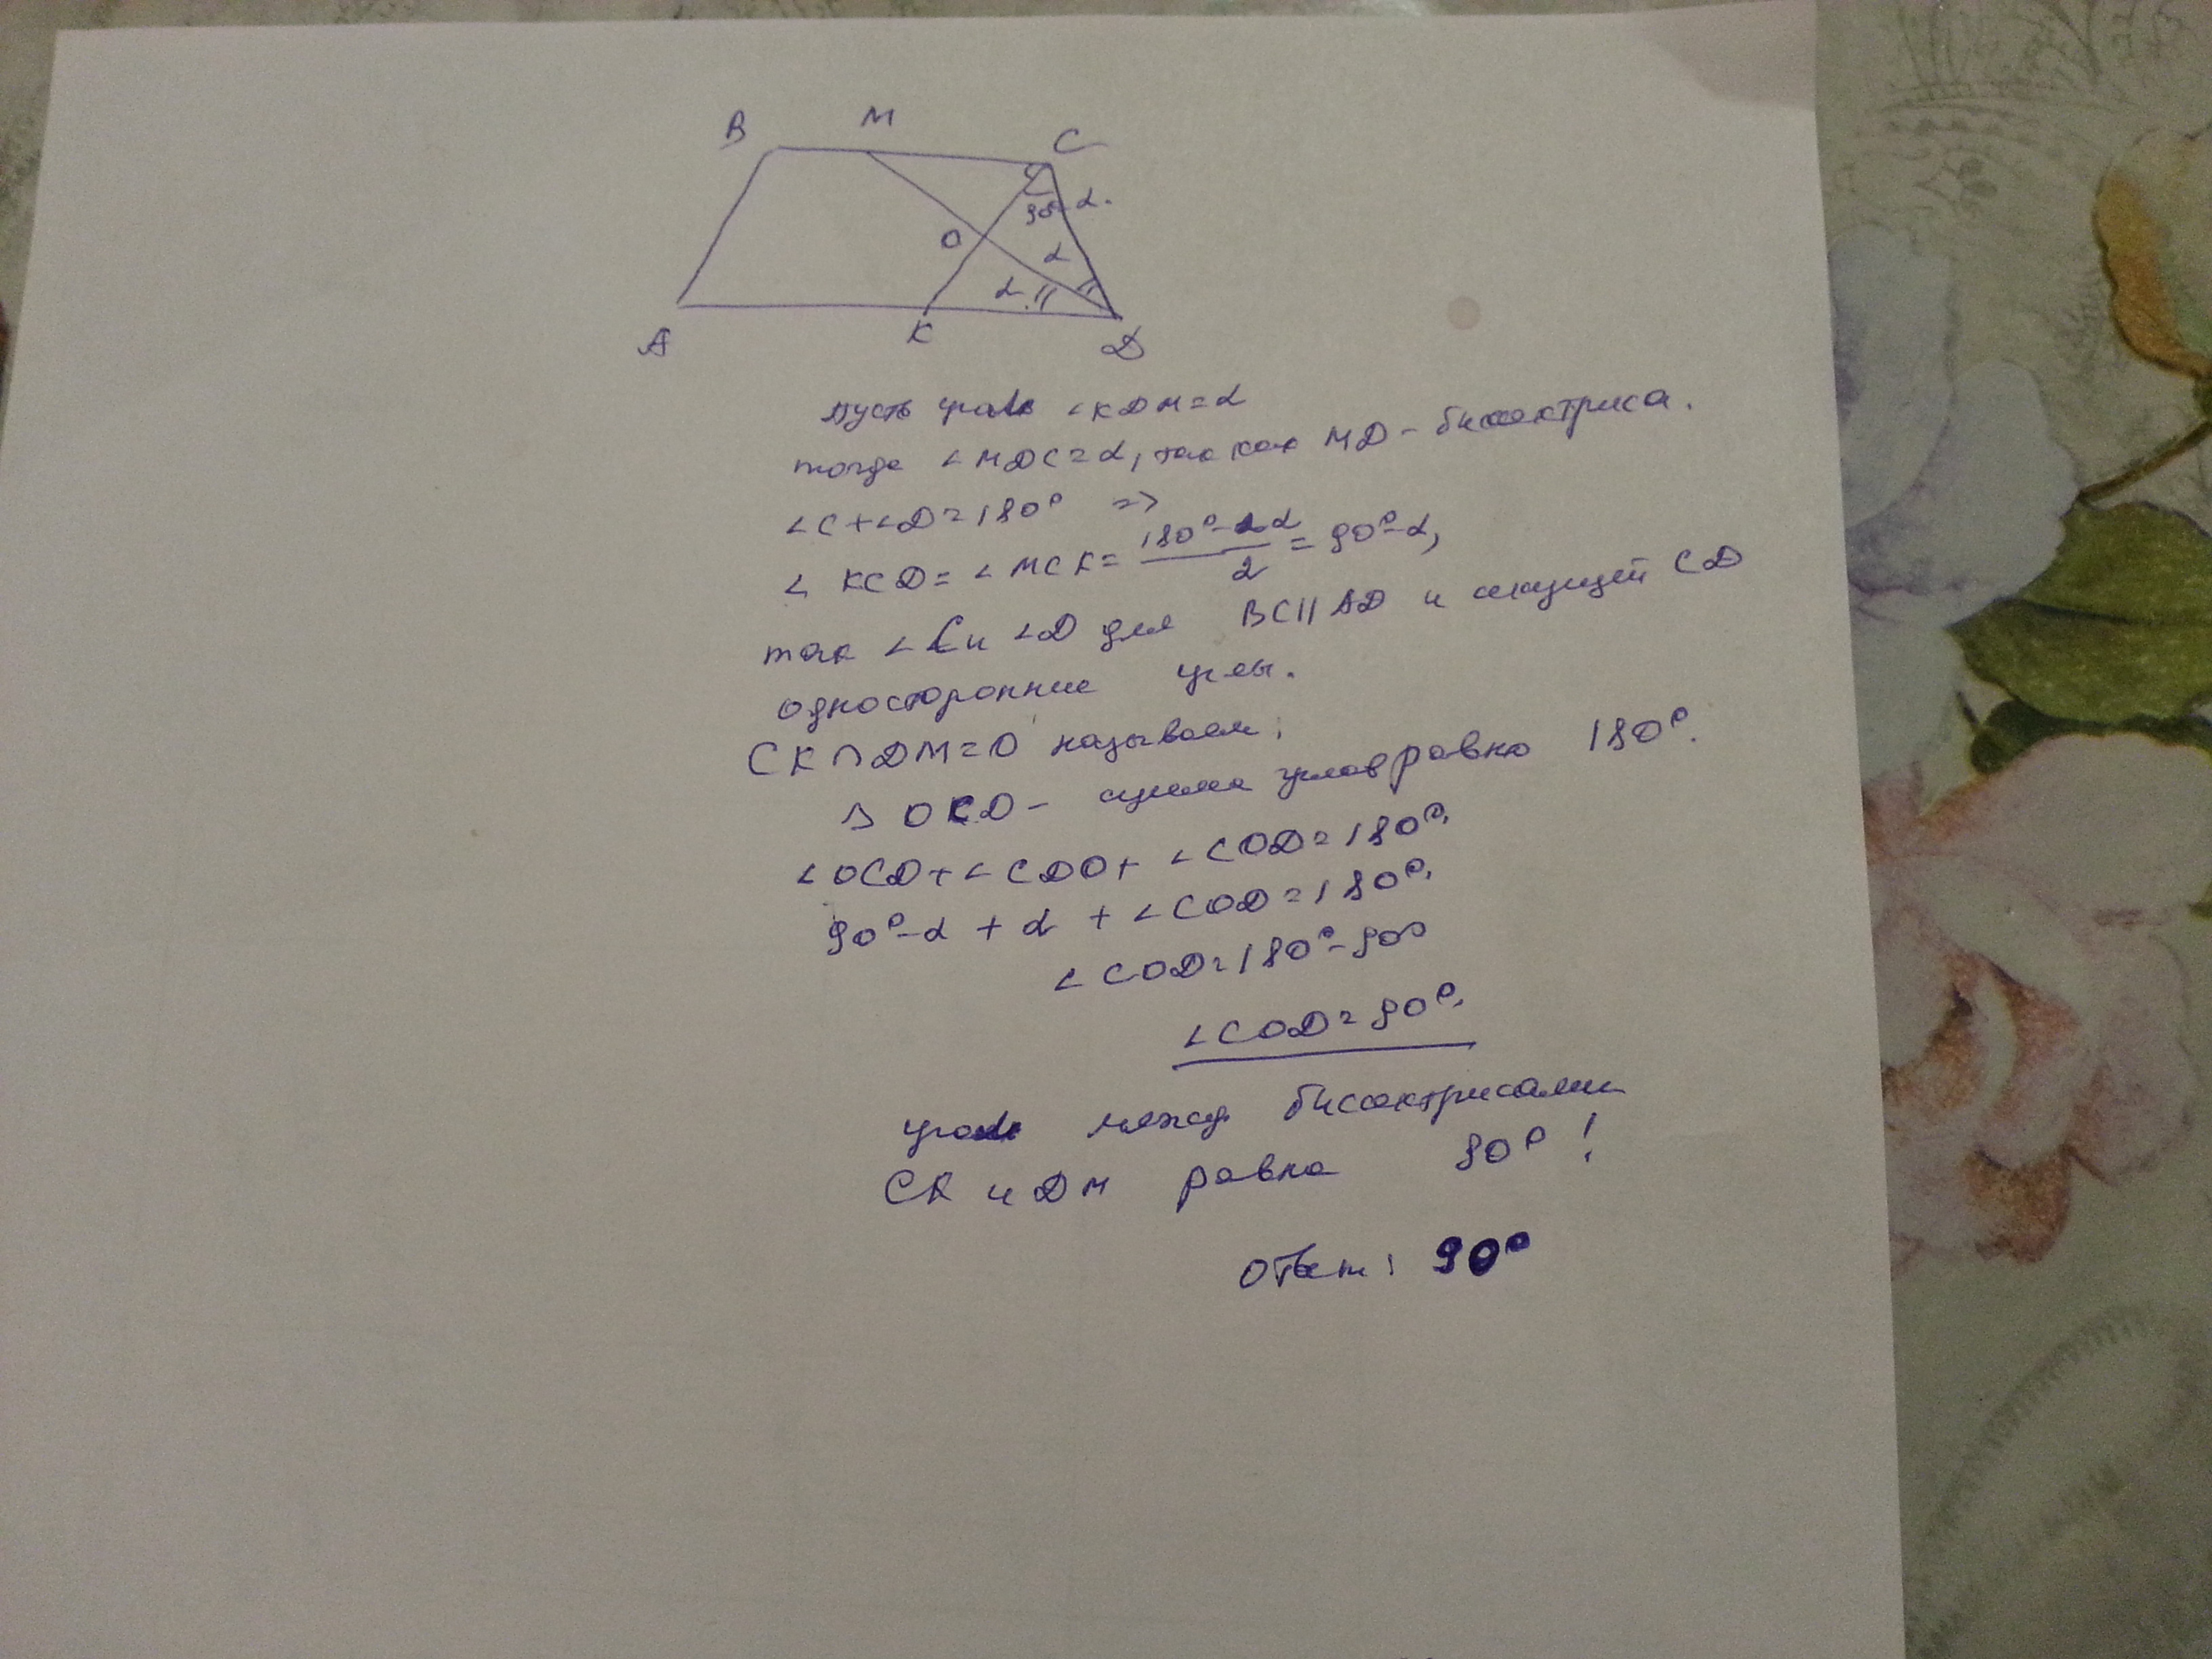 B M C
90°-α.
O α
α
A K D
Пусть угол ∠KDM=α
тогда ∠MDC=α, так как MD - биссектриса.
∠C+∠D=180° =>
∠KCD=∠MCK= (180°-2α)/2 = 90°-α,
так ∠C и ∠D для BC||AD и секущей CD
односторонние углы.
CK∩DM=O называем;
Δ OCD - сумма углов равна 180°.
∠OCD+∠CDO+∠COD=180°.
90°-α + α + ∠COD=180°.
∠COD=180°-90°
∠COD=90°.
угол между биссектрисами
CK и DM равна 90°!
Ответ: 90°